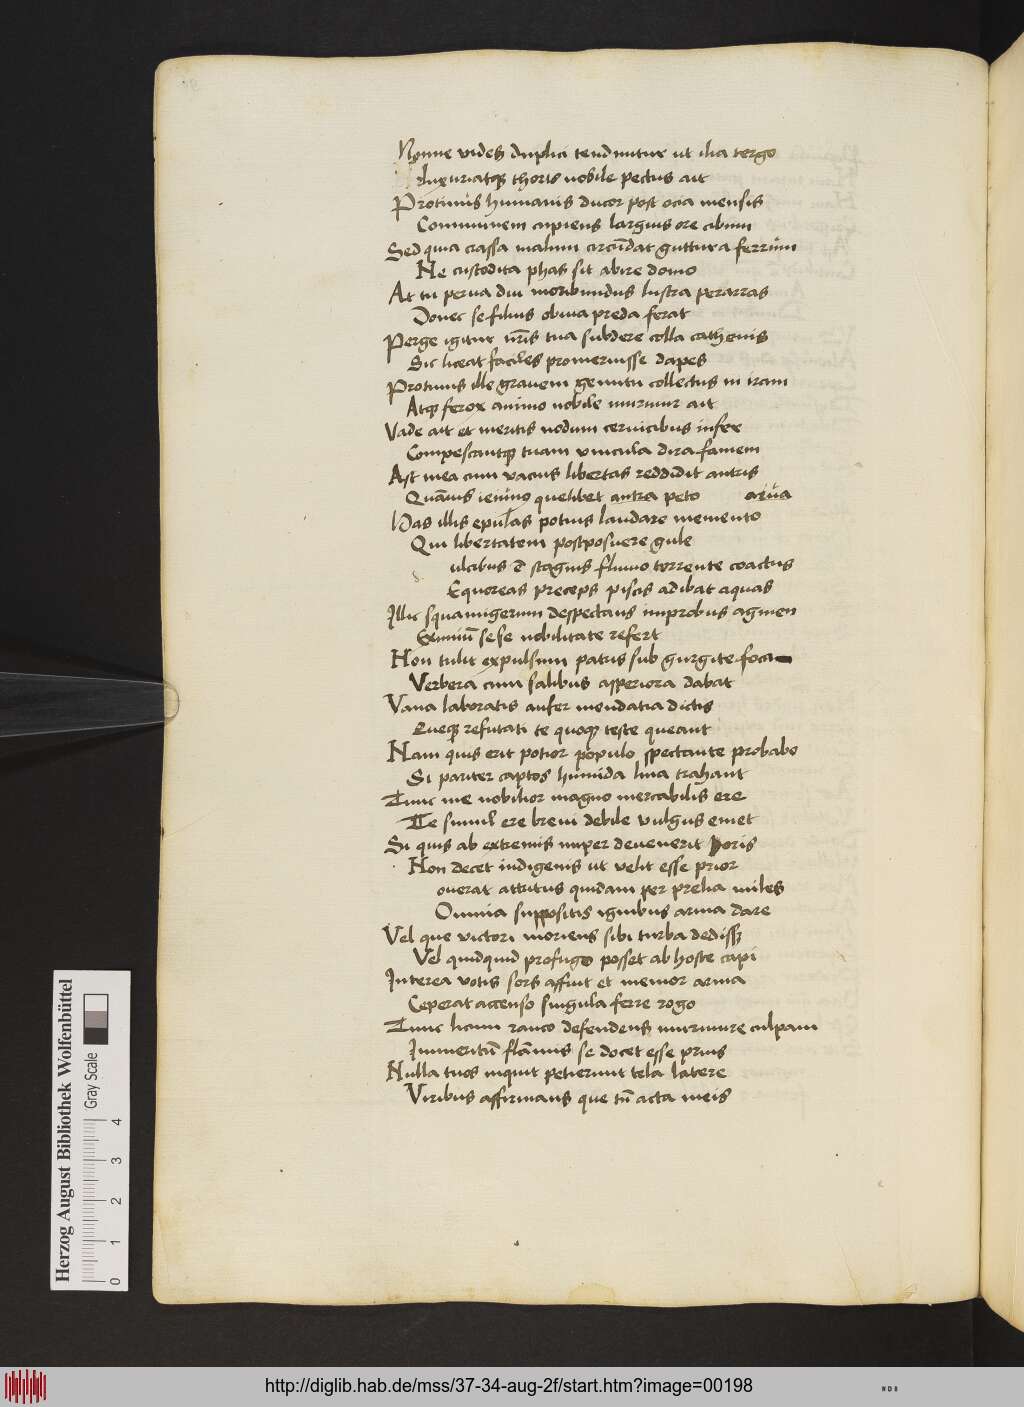 Nonne vides duplici tenduntur ut ilia tergo
luxuriatq; thoris nobile pectus ait
Protinus humanis ducor post ocia mensis
Communem capiens largius ore cibum
Sed quia crassa malum circūdat guttura ferrum
Ne custodita phas sit abire domo
At tu perva diu moribundus lustra perarras
Donec se silvis obvia preda ferat
Perge igitur nr̄is tua subdere colla cathenis
Sic liceat faciles promeruisse dapes
Protinus ille gravem gemitu collectus in iram
Atq; ferox animo nobile murmur ait
Vade ait et meritis nodum cervicibus infer
Compescantq; tuam vincula dira famem
Ast mea cum vacuis libertas reddidit antris
Quāvis ieiuno quelibet antra peto arva
Has illis epulas potius laudare memento
Qui libertatem postposuere gule
ulcibus e stagnis fluvio torrente coactus
Equoreas preceps piscis adibat aquas
Illic squamigerum despectans improbus agmen
Eximiū sese nobilitate refert
Non tulit expulsum patris sub gurgite foca
Verbera cum salibus asperiora dabat
Vana laboratis aufer mendatia dictis
Queq; refutati te quoq; teste queant
Nam quis erit potior populo spectante probabo
Si pariter captos humida lina trahant
Tunc me nobilior magno mercabilis ere
Te simul ere brevi debile vulgus emet
Si quis ab extremis nuper devenerit horis
Non decet indigenis ut velit esse prior
overat attritus quidam per prelia miles
Omnia suppositis ignibus arma dare
Vel que victori moriens sibi turba dediss;
Vel quidquid profugo posset ab hoste capi
Interea votis sors affuit et memor arma
Ceperat accenso singula ferre rogo
Tunc lituus rauco defendens murmure culpam
Immeritū flāmis se docet esse prius
Nulla tuos inquit petierunt tela latere
Viribus affirmans que tn̄ acta meis
Herzog August Bibliothek Wolfenbüttel
Gray Scale
0 1 2 3 4
http://diglib.hab.de/mss/37-34-aug-2f/start.htm?image=00198